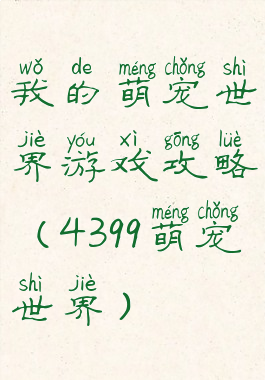 wǒ de méng chǒng shì
我的萌宠世
jiè yóu xì gōng lüè
界游戏攻略
méng chǒng
（4399萌宠
shì jiè
世界）